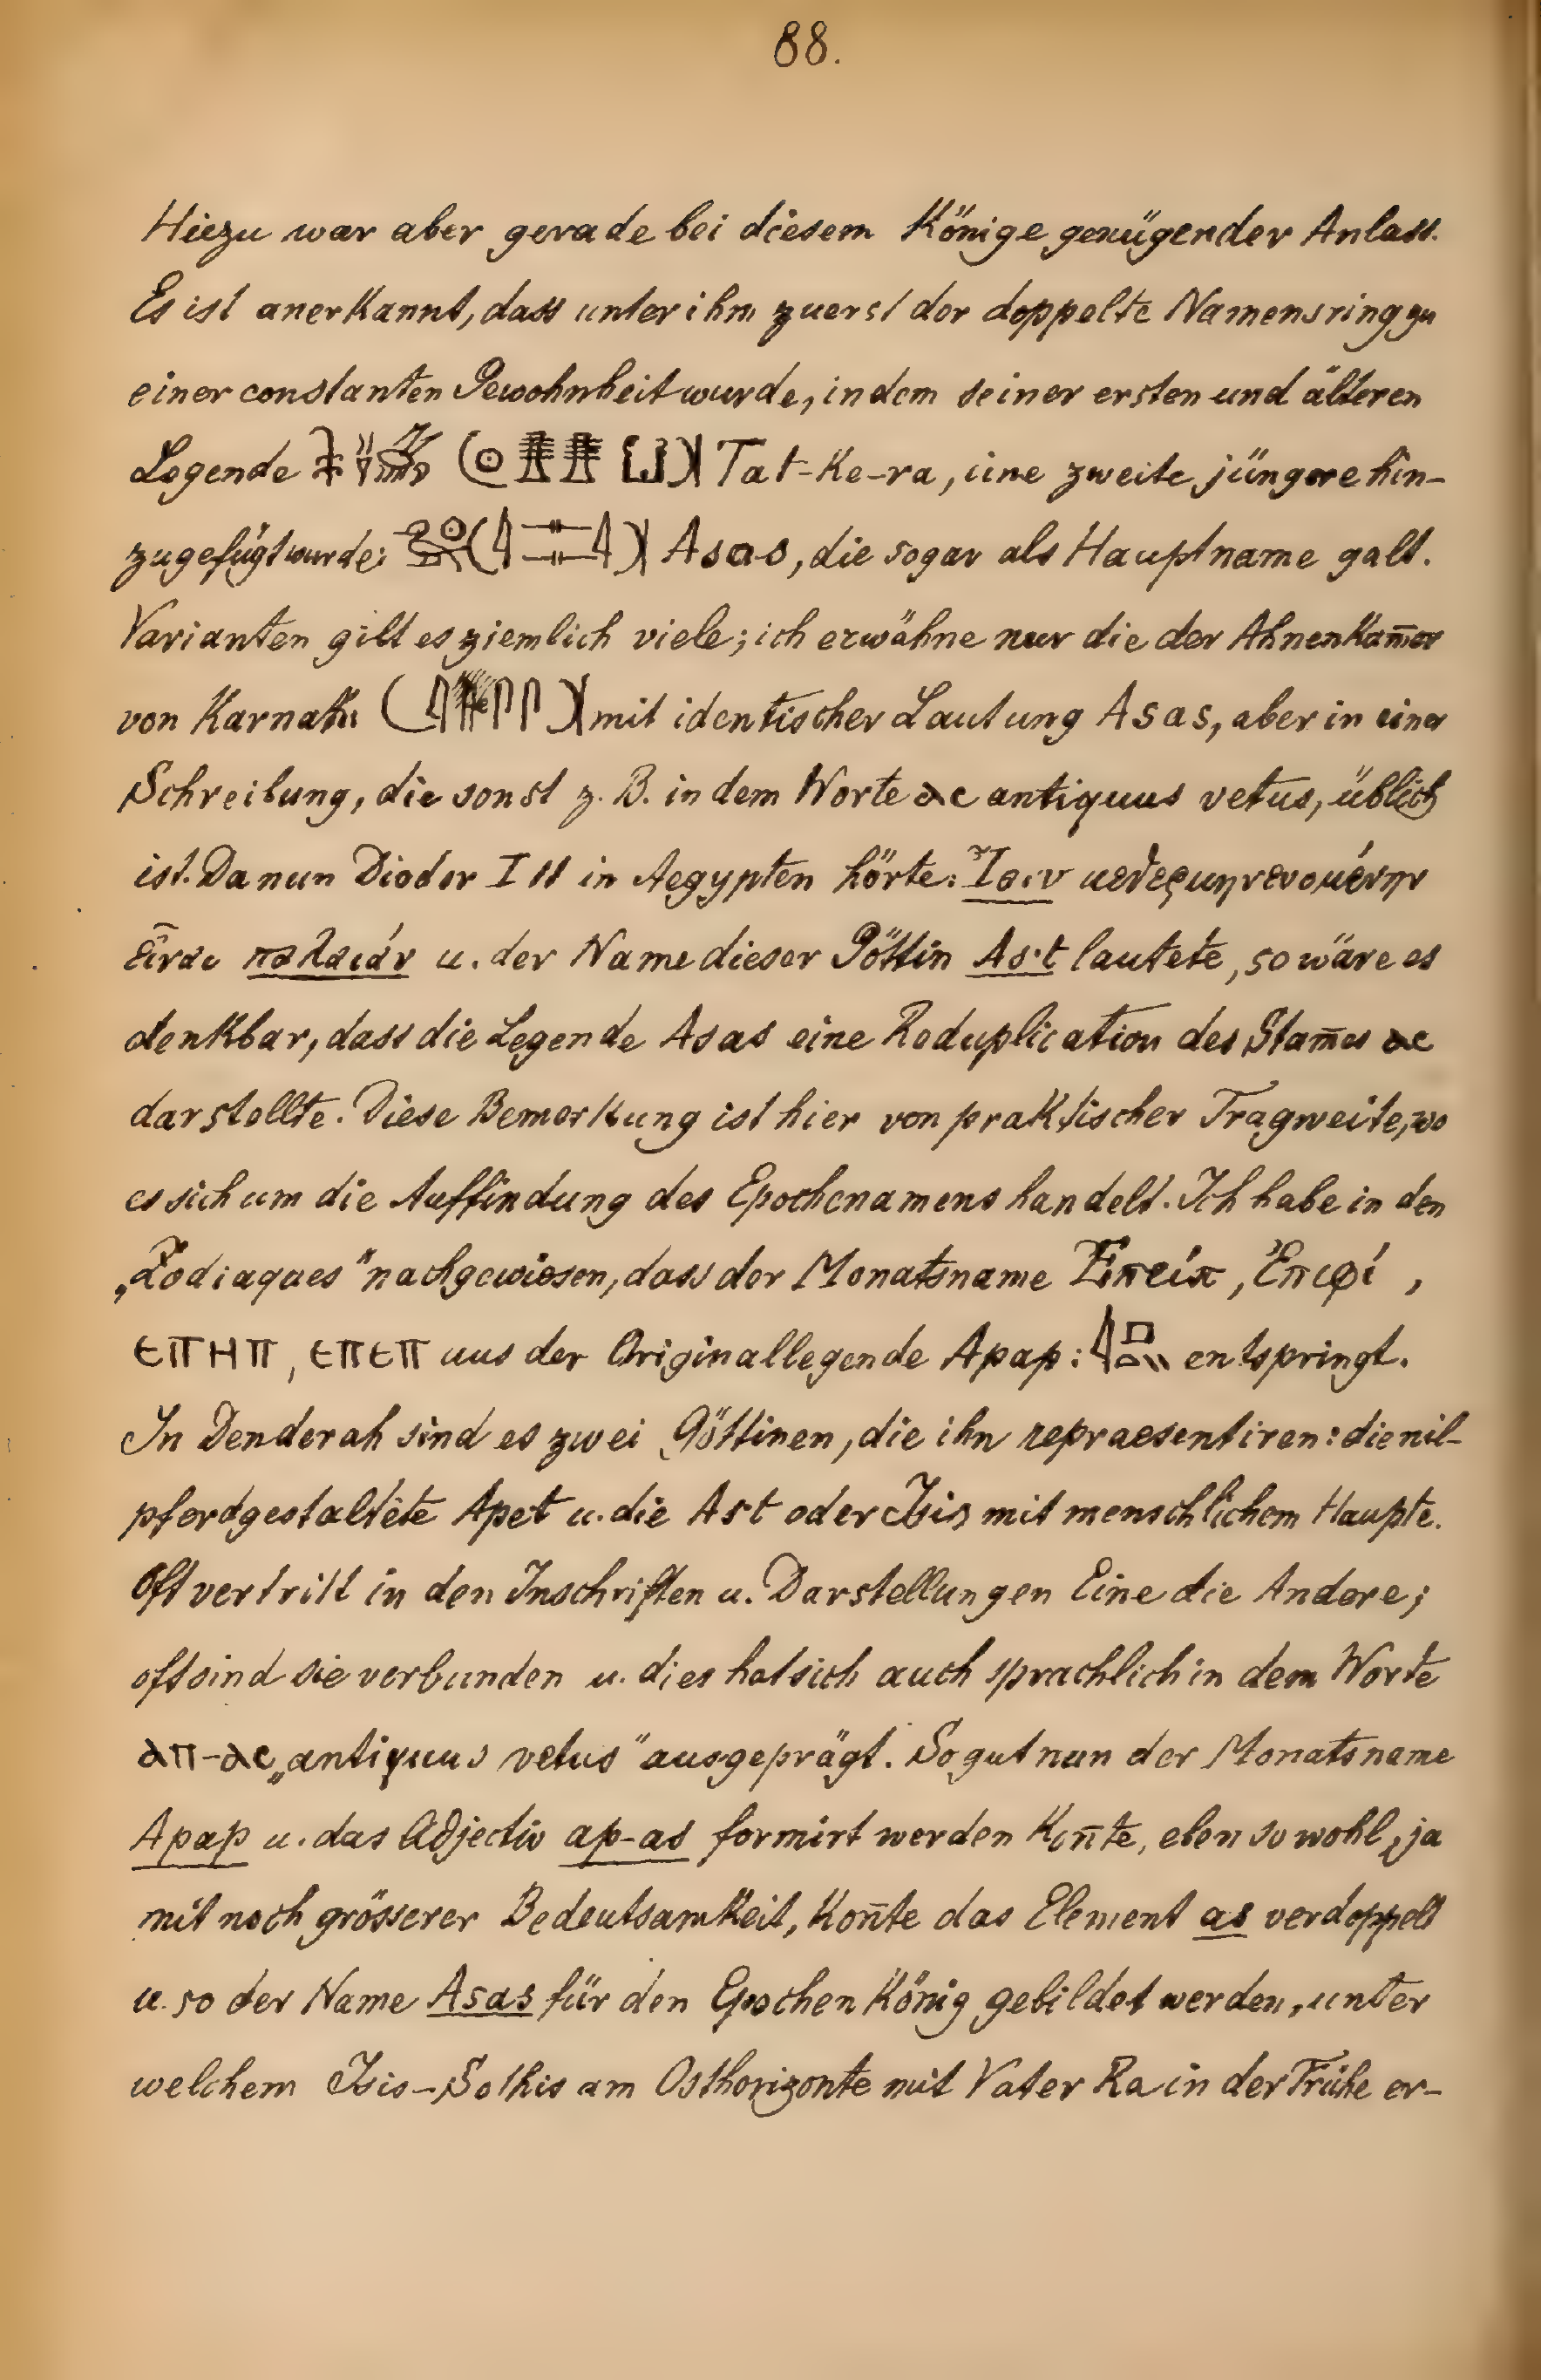 88.
Hiezu war aber gerade bei diesem Könige genügender Anlass.
Es ist anerkannt, dass unter ihm zuerst der doppelte Namensring zu
einer constanten Gewohnheit wurde, indem seiner ersten und älteren
Legende Tat-ke-ra, eine zweite jüngere hin-
zugefügt wurde: Asas, die sogar als Hauptname galt.
Varianten gilt es ziemlich viele; ich erwähne nur die der Ahnenkam̄er
von Karnak mit identischer Lautung Asas, aber in einer
Schreibung, die sonst z. B. in dem Worte ⲁⲥ antiquus vetus, üblich
ist. Da nun Diodor I 11 in Aegypten hörte: Ἶσιν μεθερμηνευομένην
εἶναι παλαιάν u. der Name dieser Göttin As·t lautete, so wäre es
denkbar, dass die Legende Asas eine Reduplication des Stam̄es ⲁⲥ
darstellte. Diese Bemerkung ist hier von praktischer Tragweite, wo
es sich um die Auffindung des Epochenamens handelt. Ich habe in den
„Zodiaques" nachgewiesen, dass der Monatsname Ἐπείπ, Ἐπιφί,
ⲉⲡⲏⲡ, ⲉⲡⲉⲡ aus der Originallegende Apap: entspringt.
In Denderah sind es zwei Göttinen, die ihn repraesentiren: die nil-
pferdgestaltete Apet u. die Ast oder Isis mit menschlichem Haupte.
Oft vertritt in den Inschriften u. Darstellungen Eine die Andere;
oft sind sie verbunden u. dies hat sich auch sprachlich in dem Worte
ⲁⲡ-ⲁⲥ „antiquus vetus" ausgeprägt. So gut nun der Monatsname
Apap u. das Adjectiv ap-as formirt werden kon̄te, eben so wohl, ja
mit noch grösserer Bedeutsamkeit, kon̄te das Element as verdoppelt
u. so der Name Asas für den Epochenkönig gebildet werden, unter
welchem Isis-Sothis am Osthorizonte mit Vater Ra in der Frühe er-